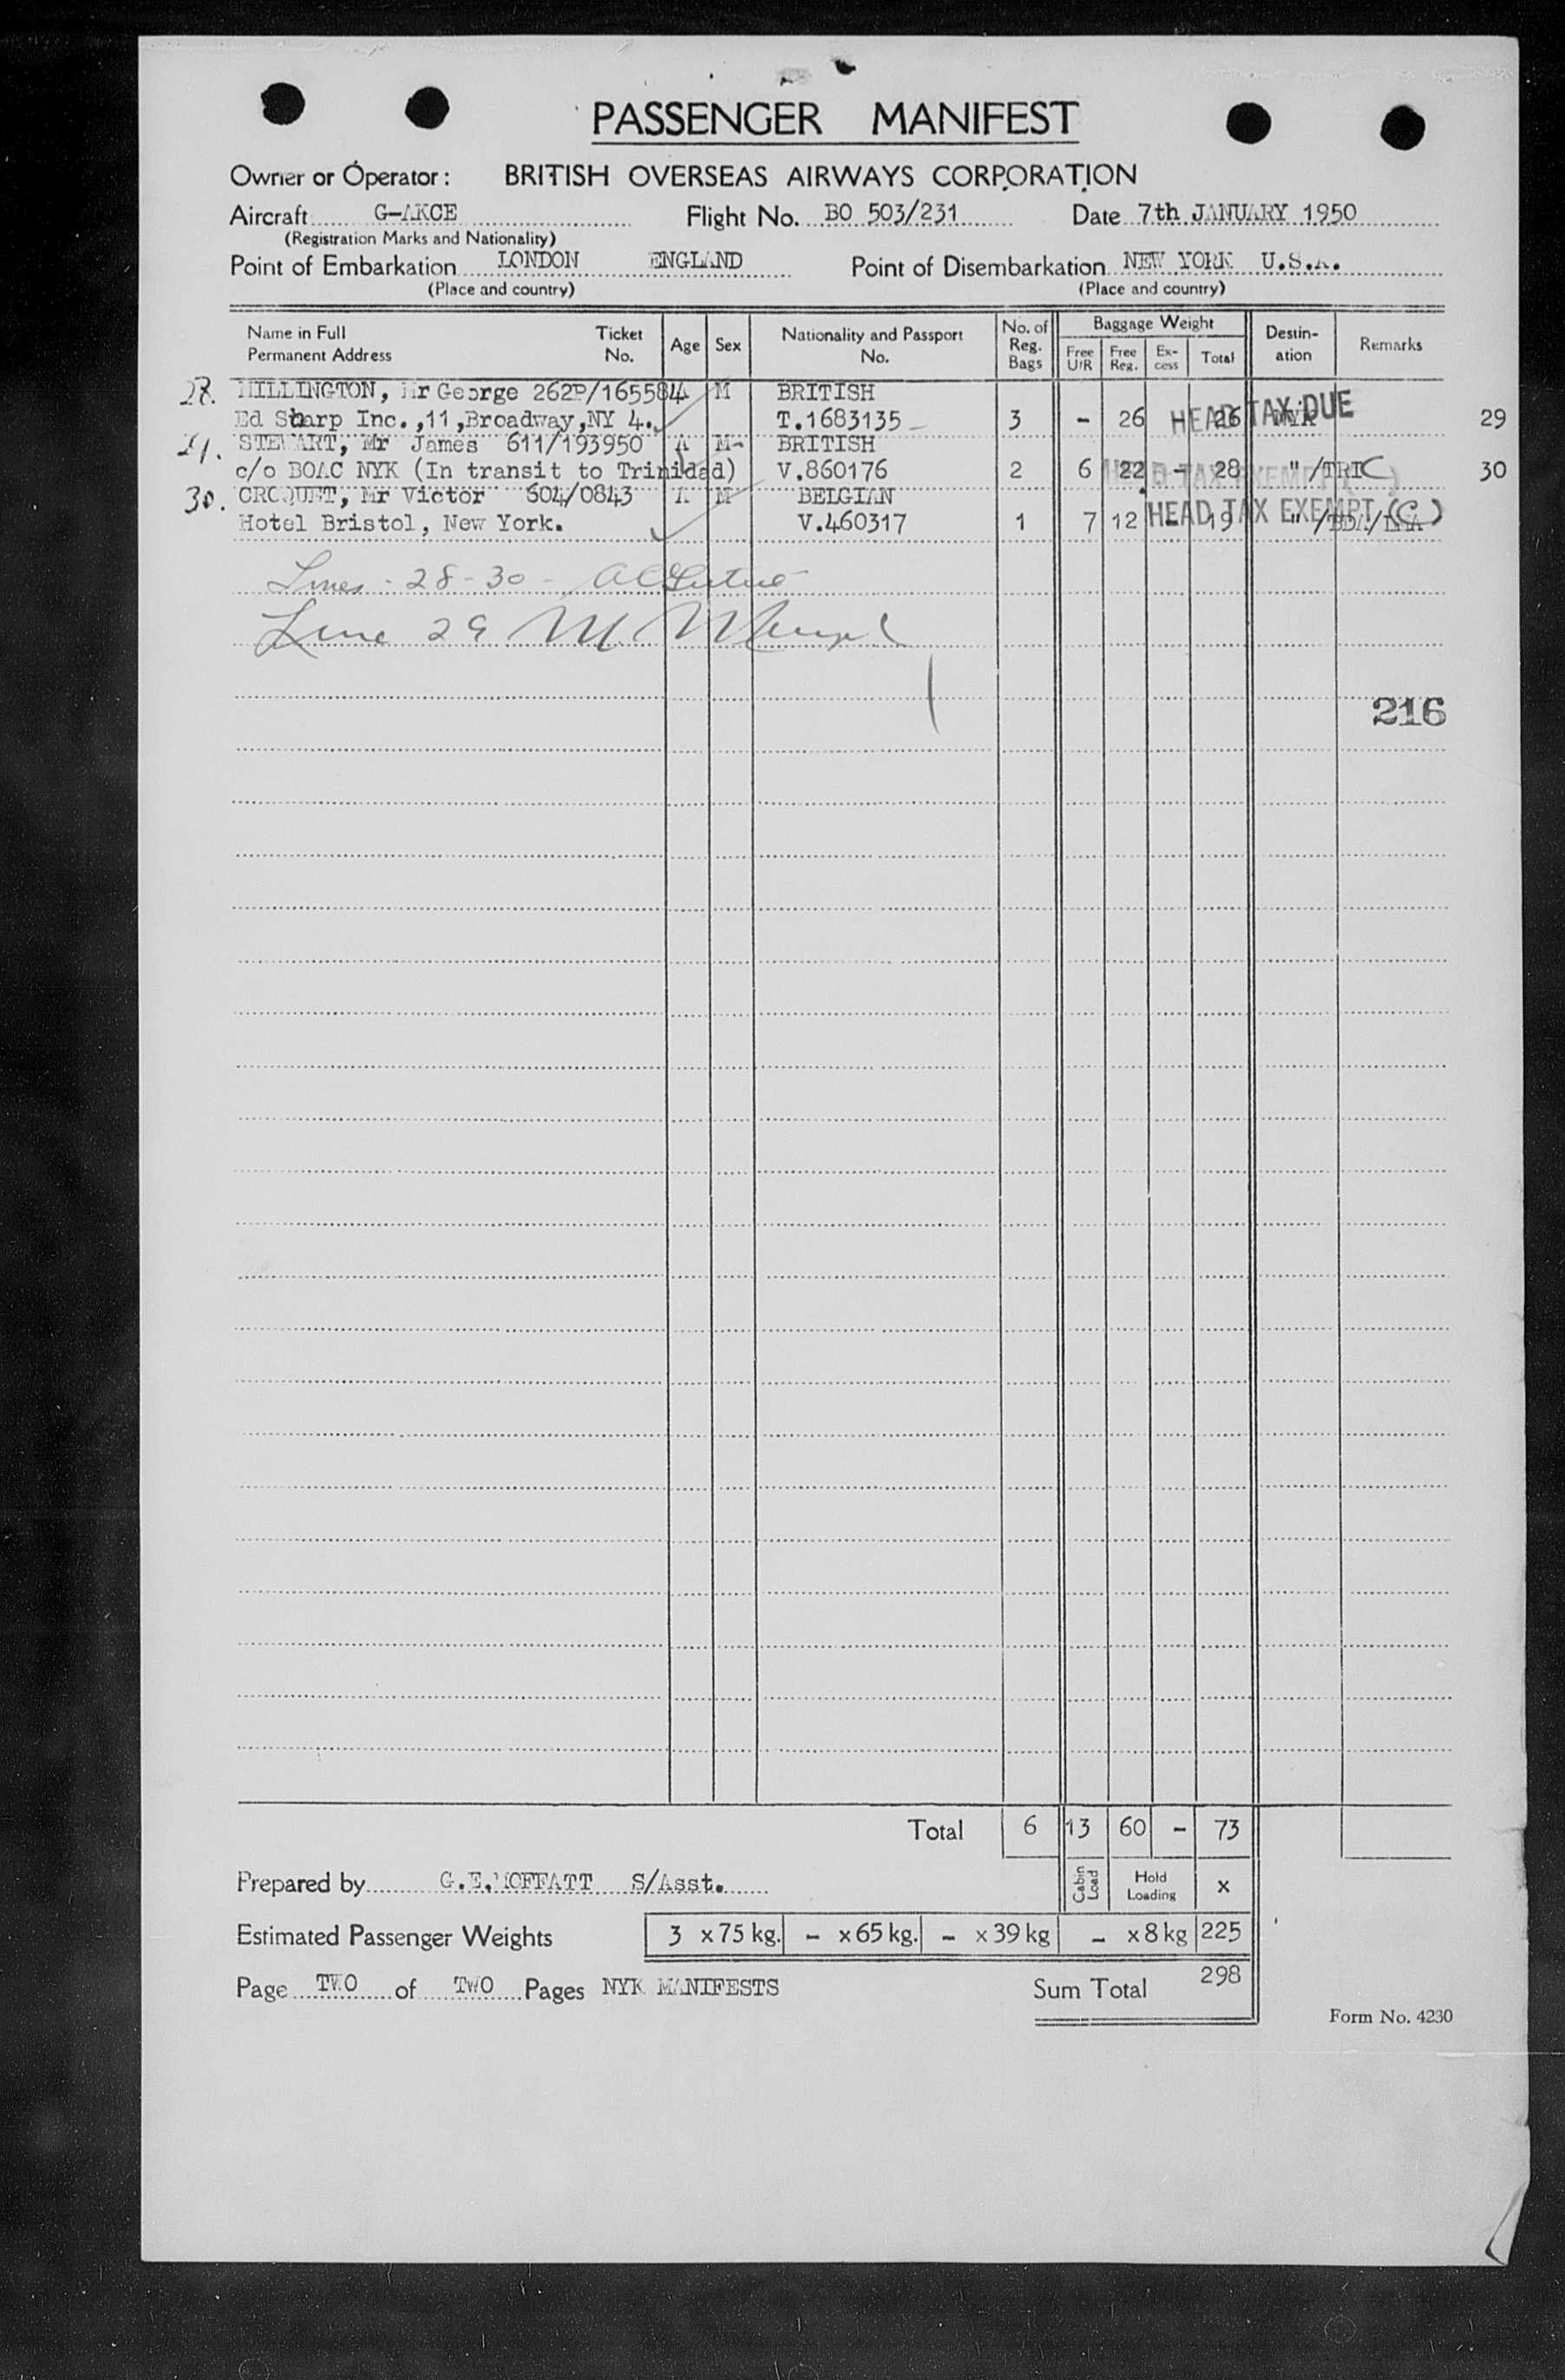 PASSENGER MANIFEST
Owner or Operator: BRITISH OVERSEAS AIRWAYS CORPORATION
Aircraft G-AKCE Flight No. BO 503/231 Date 7th JANUARY 1950
(Registration Marks and Nationality)
Point of Embarkation LONDON ENGLAND Point of Disembarkation NEW YORK U.S.A.
(Place and country) (Place and country)
Name in Full Ticket Age Sex Nationality and Passport No. of Baggage Weight Destin- Remarks
Permanent Address No. No. Reg. Bags Free U/R Free Reg. Ex-cess Total ation
28. MILLINGTON, Mr George 262P/165584 A M BRITISH
Ed Sharp Inc.,11,Broadway,NY 4. T.1683135 3 - 26 26 NYK HEAD TAX DUE 29
29. STEWART, Mr James 611/193950 A M BRITISH
c/o BOAC NYK (In transit to Trinidad) V.860176 2 6 22 - 28 " /TRI HEAD TAX EXEMPT (C) 30
30. CROQUET, Mr Victor 604/0843 A M BELGIAN
Hotel Bristol, New York. V.460317 1 7 12 - 19 " /BDA/ HEAD TAX EXEMPT (C)
Lines - 28-30 -
Line 29 M
216
Total 6 13 60 - 73
Prepared by G.E.MOFFATT S/Asst. Cabin Load Hold Loading x
Estimated Passenger Weights 3 x 75 kg. - x 65 kg. - x 39 kg - x 8 kg 225
Page TWO of TWO Pages NYK MANIFESTS Sum Total 298
Form No. 4230